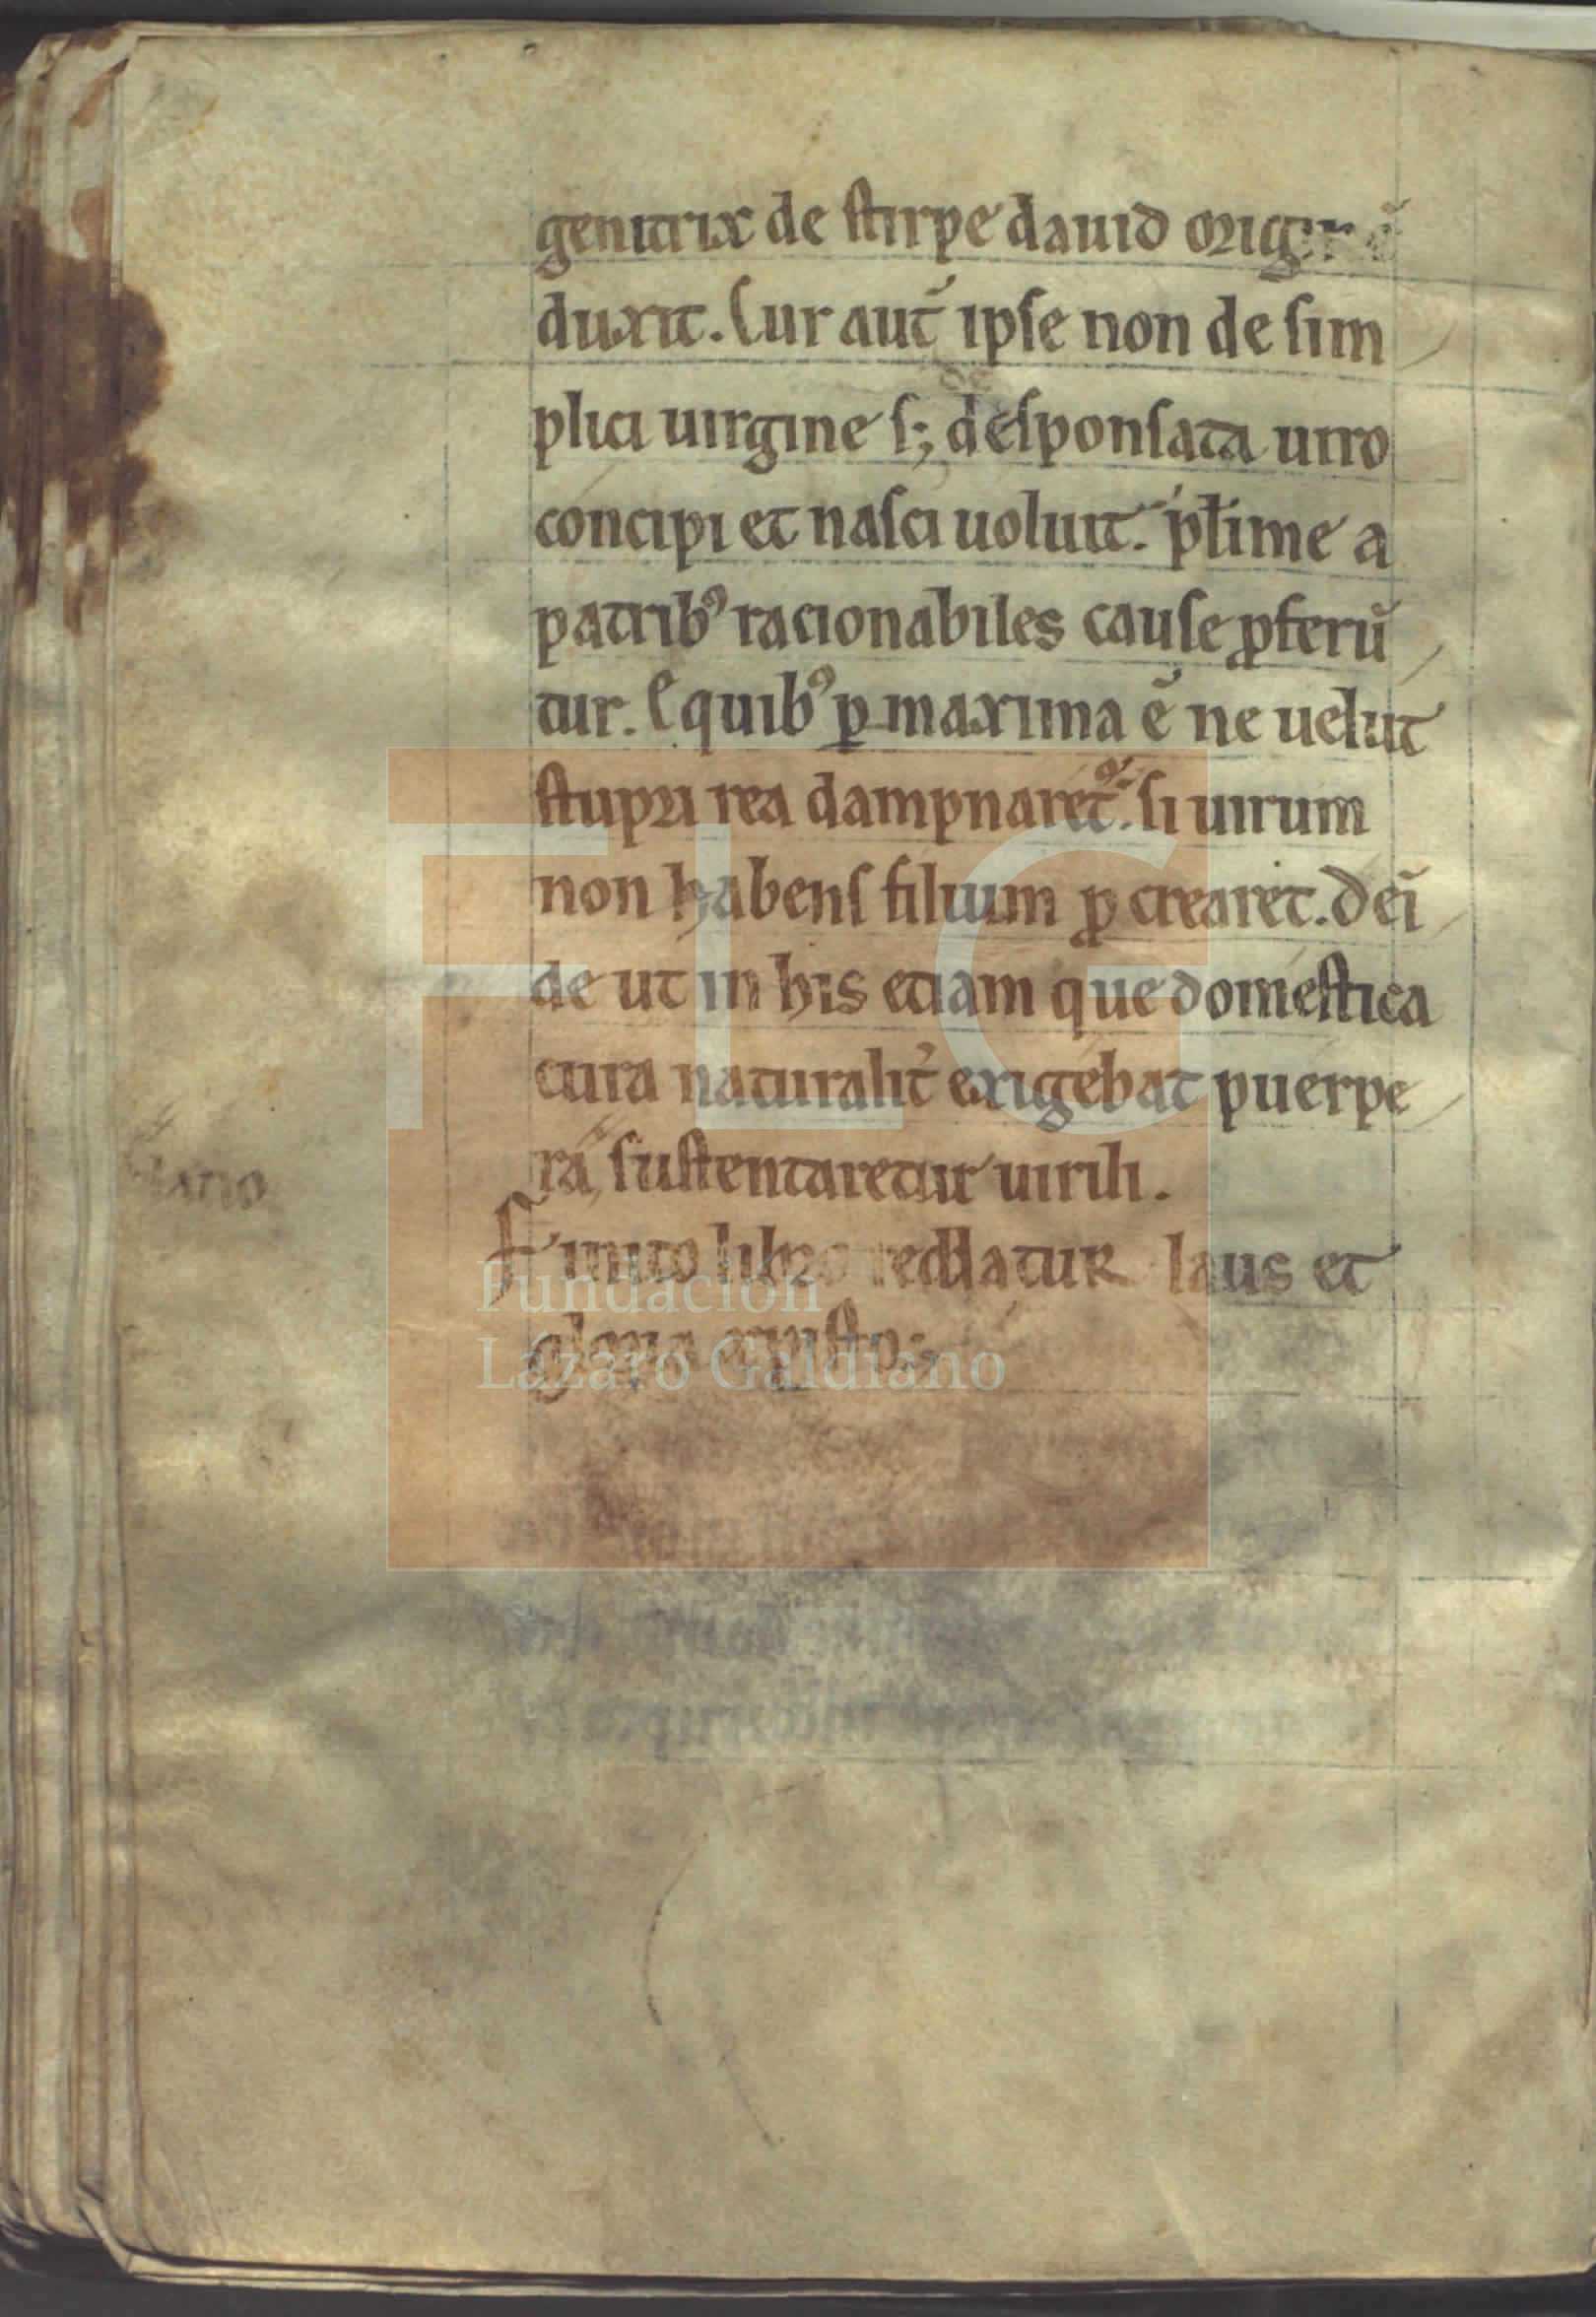 genitrix de stirpe dauid
duxit. Cur aut̄ ipse non de sim
plici uirgine s; desponsata uiro
concipi et nasci uoluit. pl̄ime a
patribꝰ racionabiles cause ꝓferū
tur. E quibꝰ ꝑ maxima ē ne uelut
stupri rea dampnaret᷑. si uirum
non habens filium ꝓ crearet. Deī
de ut in his etiam que domestica
cura naturalit̉ exigebat puerpe
ra, sustentaretur uirili.
Finito libro reddatur laus et
gloria cristo;
FLG
Fundación
Lázaro Galdiano